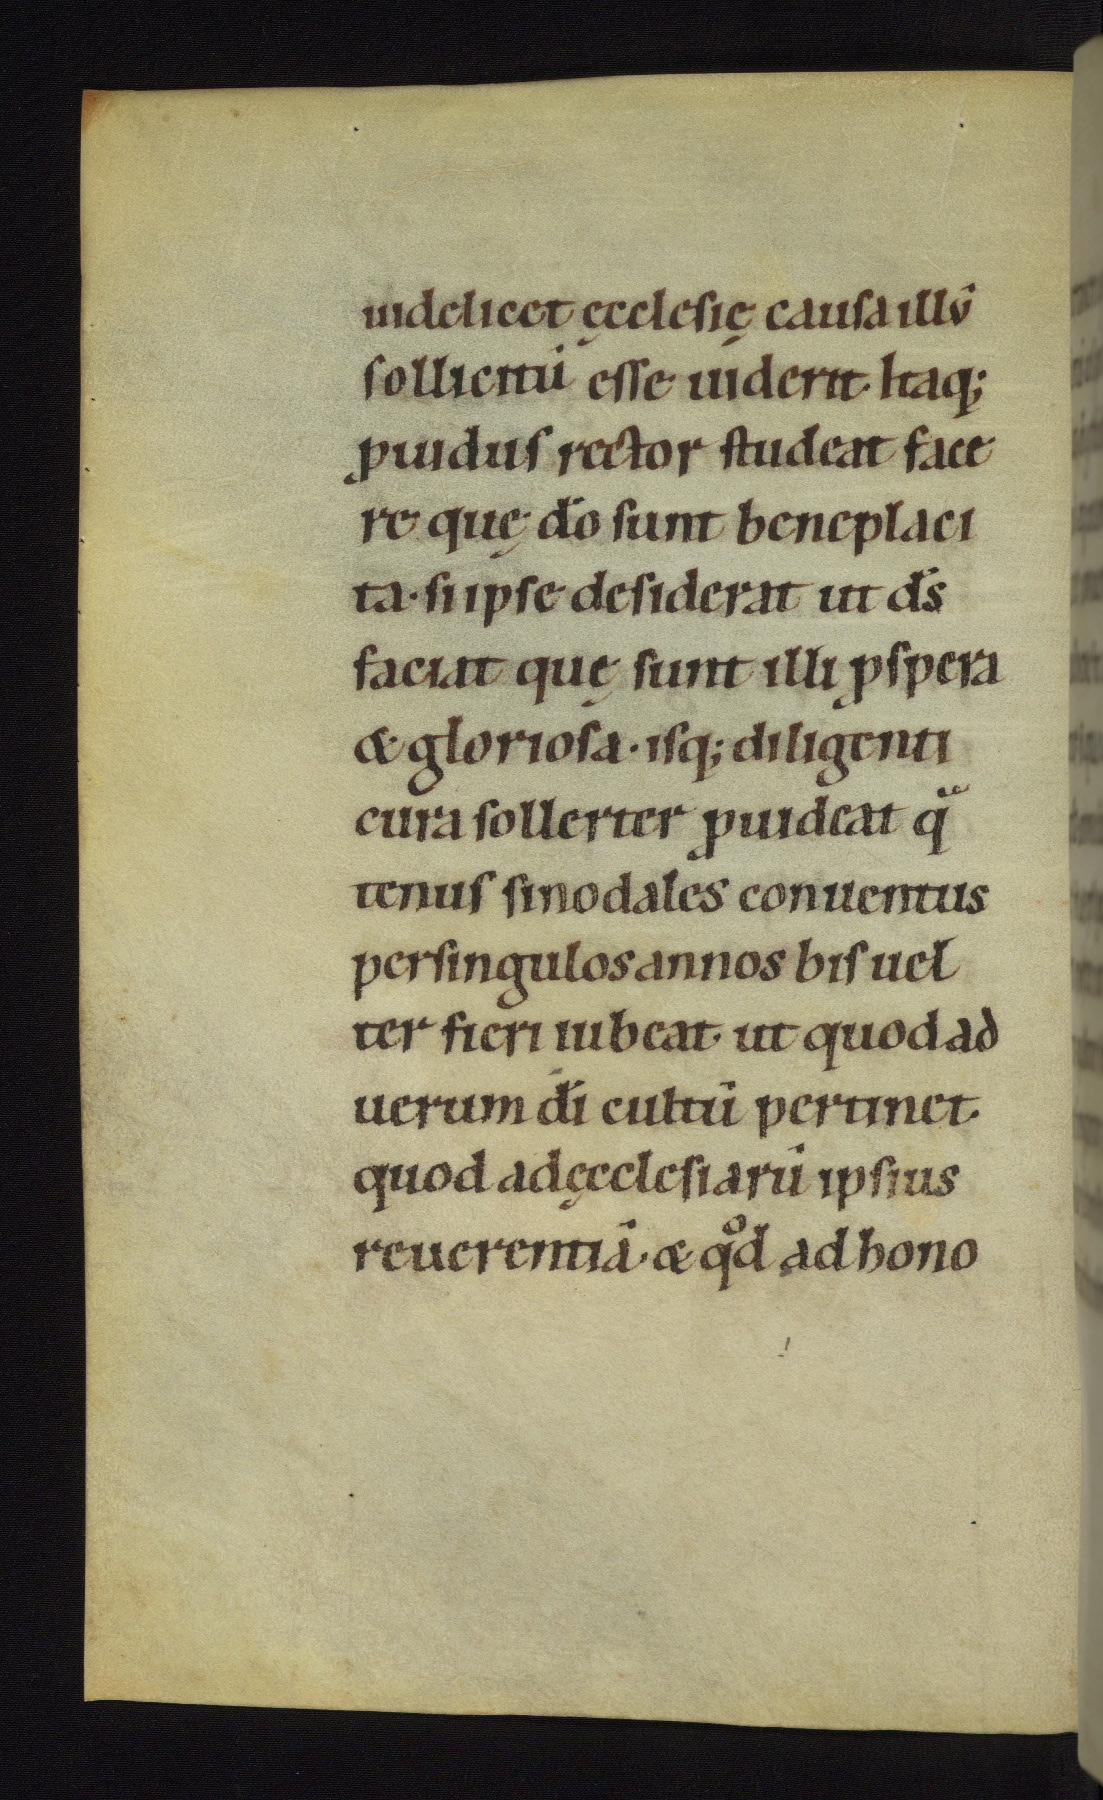 uidelicet ęcclesię causa illū
sollicitū esse uiderit. Itaq;
ꝓuidus rector studeat face
re quę do̅ sunt beneplaci
ta· si ipse desiderat ut ds̅
faciat quę sunt illi ꝓspera
& gloriosa· isq; diligenti
cura sollerter ꝓuideat qͣ
tenus sinodales conuentus
per singulos annos bis uel
ter fieri iubeat· ut quod ad
uerum di̅ cultū pertinet·
quod ad ęcclesiarū ipsius
reuerentiā· & qͦd ad hono